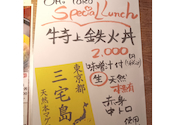 OH! TORO
Special Lunch
特上鉄火丼
2,000円
味噌汁付
生 天然
東京都
三宅島
天然本マグロ
赤身
中トロ
使用